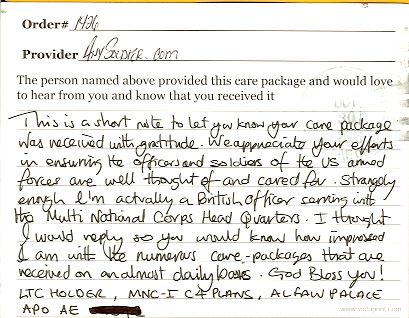 Order# 1426
Provider AnySoldier.com
The person named above provided this care package and would love
to hear from you and know that you received it
This is a short note to let you know your care package
was received with gratitude. We appreciate your efforts
in ensuring the officers and soldiers of the US armed
forces are well thought of and cared for. Strangely
enough I'm actually a British Officer serving with
the Multi National Corps Head Quarters. I thought
I would reply so you would know how impressed
I am with the numerous care-packages that are
received on an almost daily basis. God Bless you!
LTC HOLDER, MNC-I C4 PLANS, AL FAW PALACE
APO AE
www.vistaprint.com